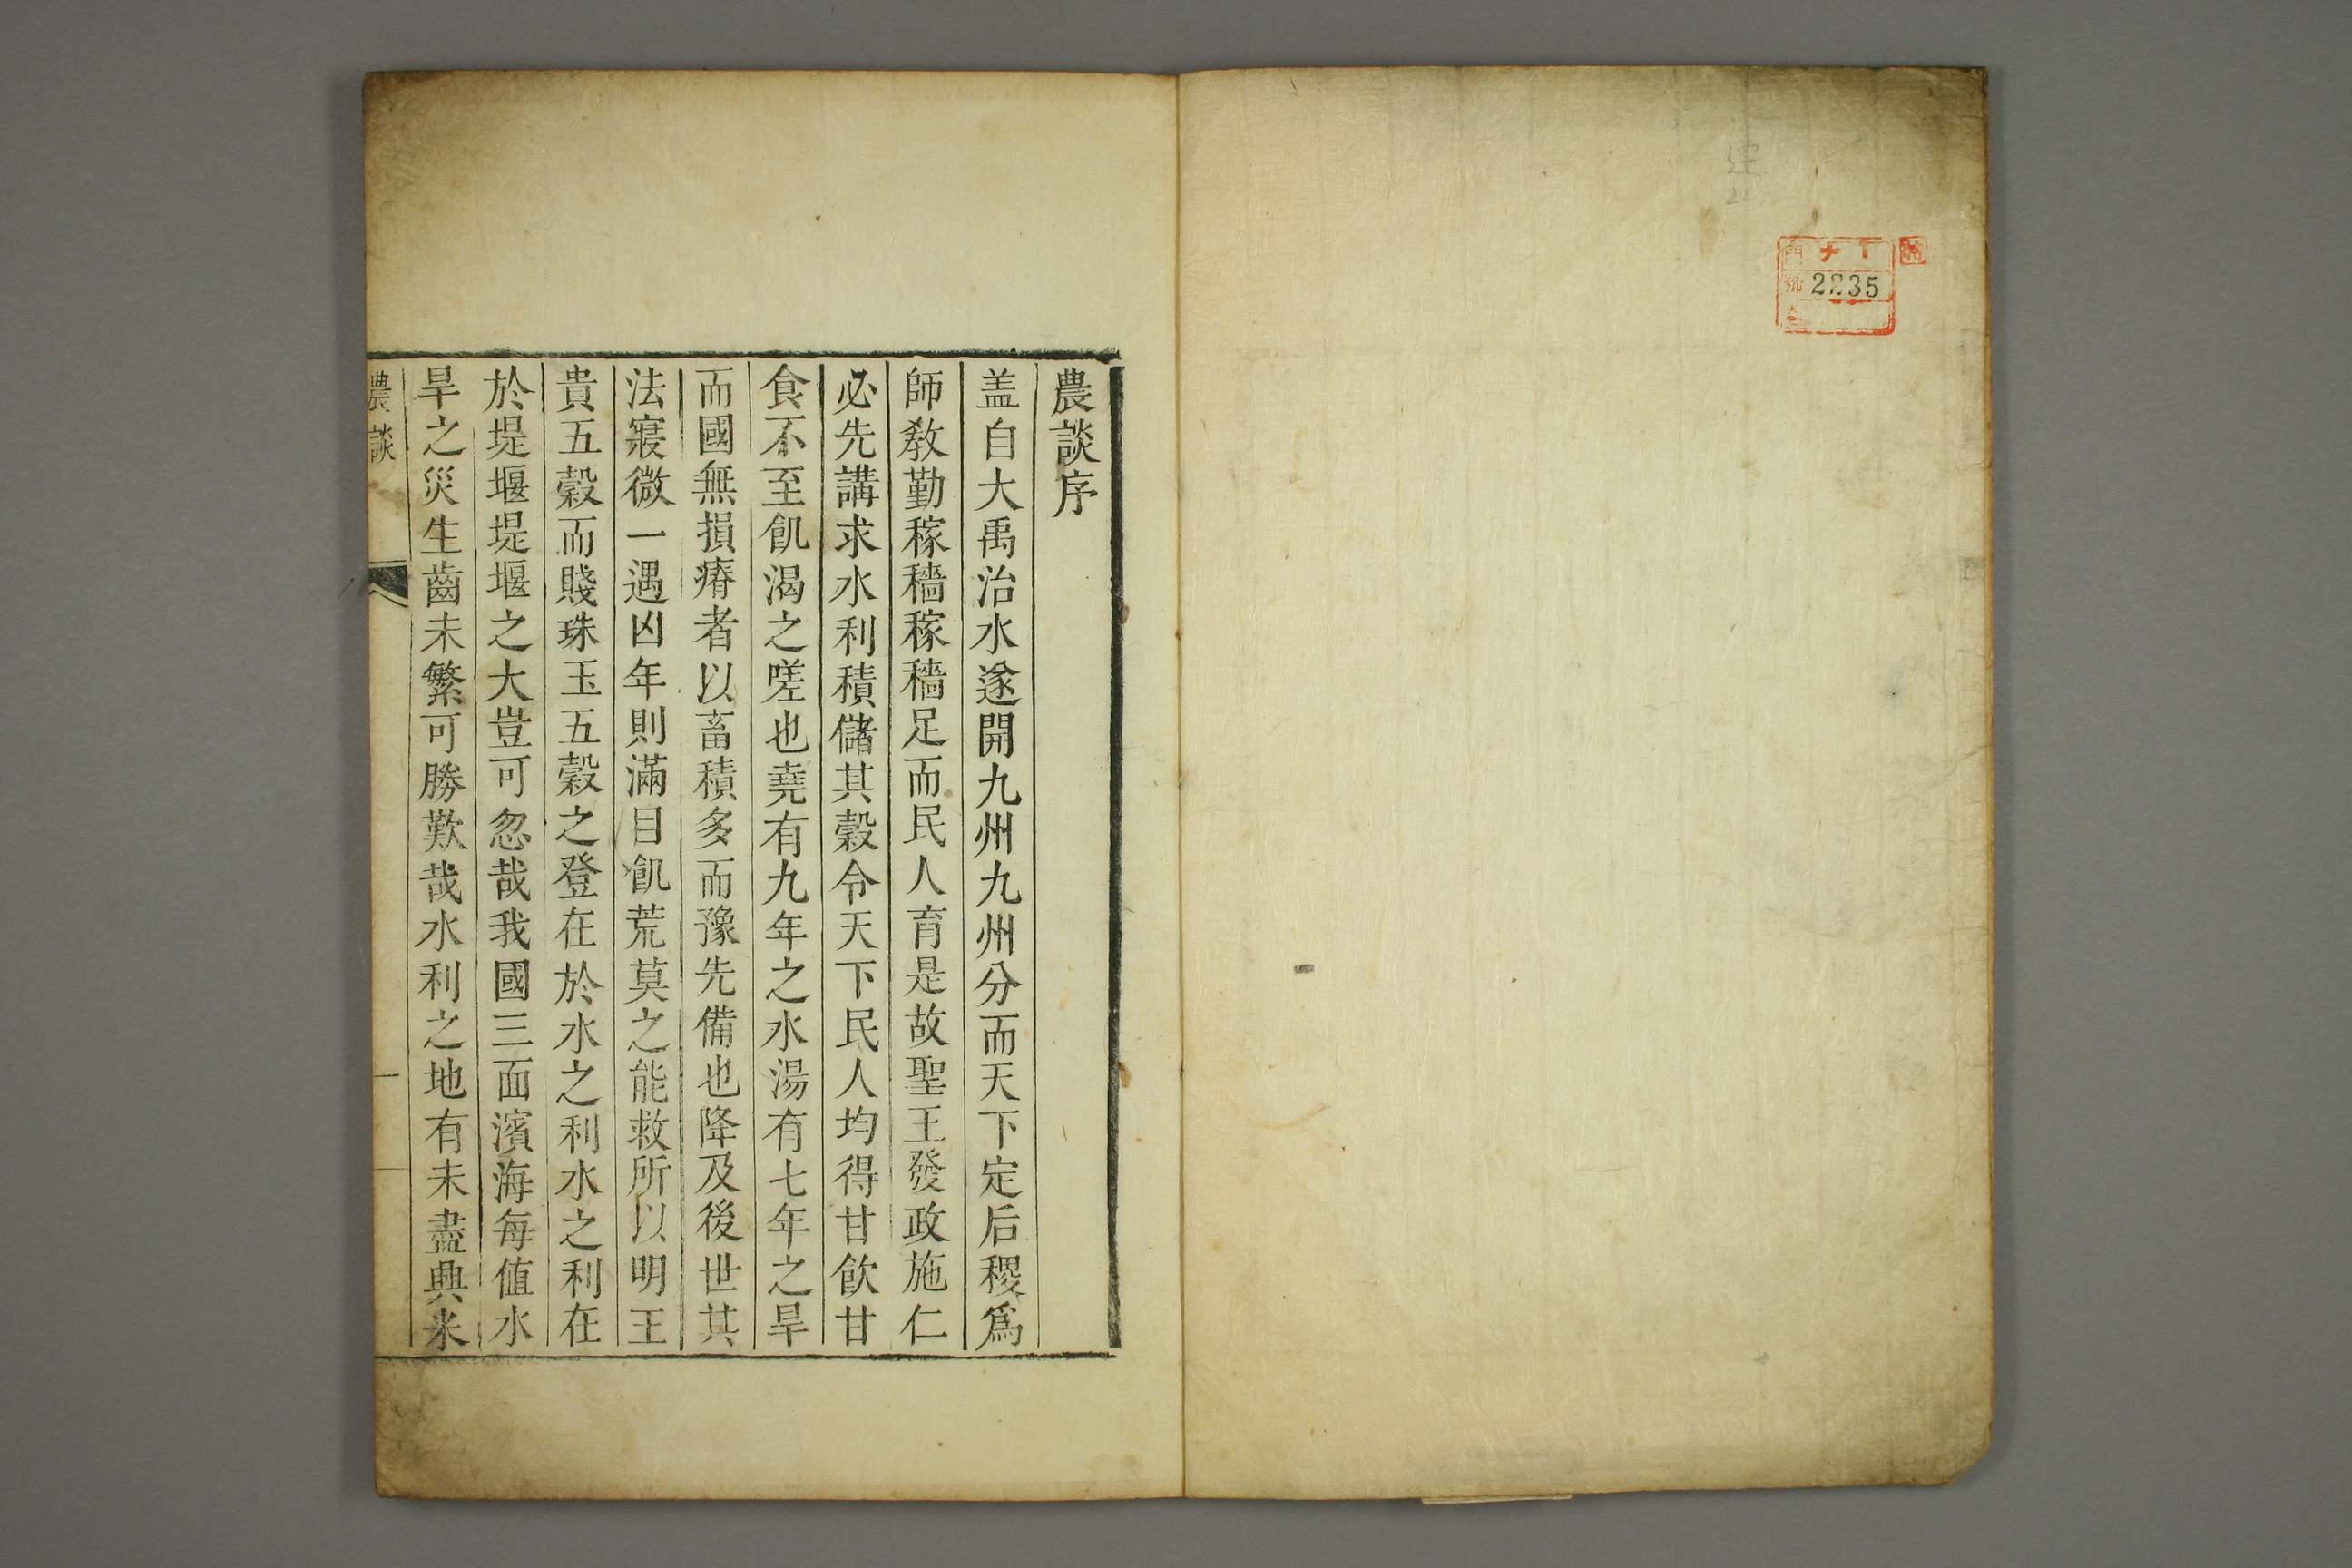 門
号
2235
農談序
盖自大禹治水遂開九州九州分而天下定后稷爲
師敎勤稼穡稼穡足而民人育是故聖王發政施仁
必先講求水利積儲其穀令天下民人均得甘飮甘
食不至飢渴之嗟也堯有九年之水湯有七年之旱
而國無損瘠者以畜積多而豫先備也降及後世其
法寢微一遇凶年則滿目飢荒莫之能救所以明王
貴五穀而賤珠玉五穀之登在於水之利水之利在
於堤堰堤堰之大豈可忽哉我國三面濱海每値水
旱之災生齒未繁可勝歎哉水利之地有未盡興来
農談
一